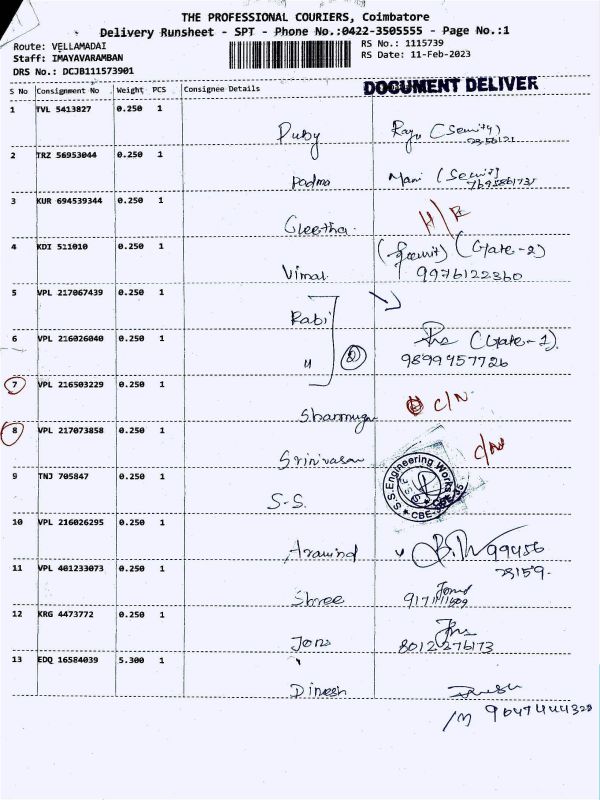 THE PROFESSIONAL COURIERS, Coimbatore
Delivery Runsheet - SPT - Phone No.:0422-3505555 - Page No.:1
Route: VELLAMADAI RS No.: 1115739
Staff: IMAYAVARAMBAN RS Date: 11-Feb-2023
DRS No.: DCJB111573901
S No Consignment No Weight PCS Consignee Details DOCUMENT DELIVER
1 TVL 5413827 0.250 1
Ruby Raju (Security)
2 TRZ 56953044 0.250 1
Padma Mani (Security)
3 KUR 694539344 0.250 1 H/E
Geetha
4 KDI 511010 0.250 1 (Gate-2)
Vimal 9976122360
5 VPL 217067439 0.250 1
Rabi
6 VPL 216026040 0.250 1 (Gate-1)
" 2 9899457726
7 VPL 216503229 0.250 1 C/N
Shanmuga
8 VPL 217073858 0.250 1 C/N
Srinivasan
9 TNJ 705847 0.250 1 S.S.Engineering Works
S-S. CBE-35
10 VPL 216026295 0.250 1
Aravind 99456
11 VPL 401233073 0.250 1 23159
Shree
12 KRG 4473772 0.250 1
Jons 8012276173
13 EDQ 16584039 5.300 1
Dinesh Dinesh